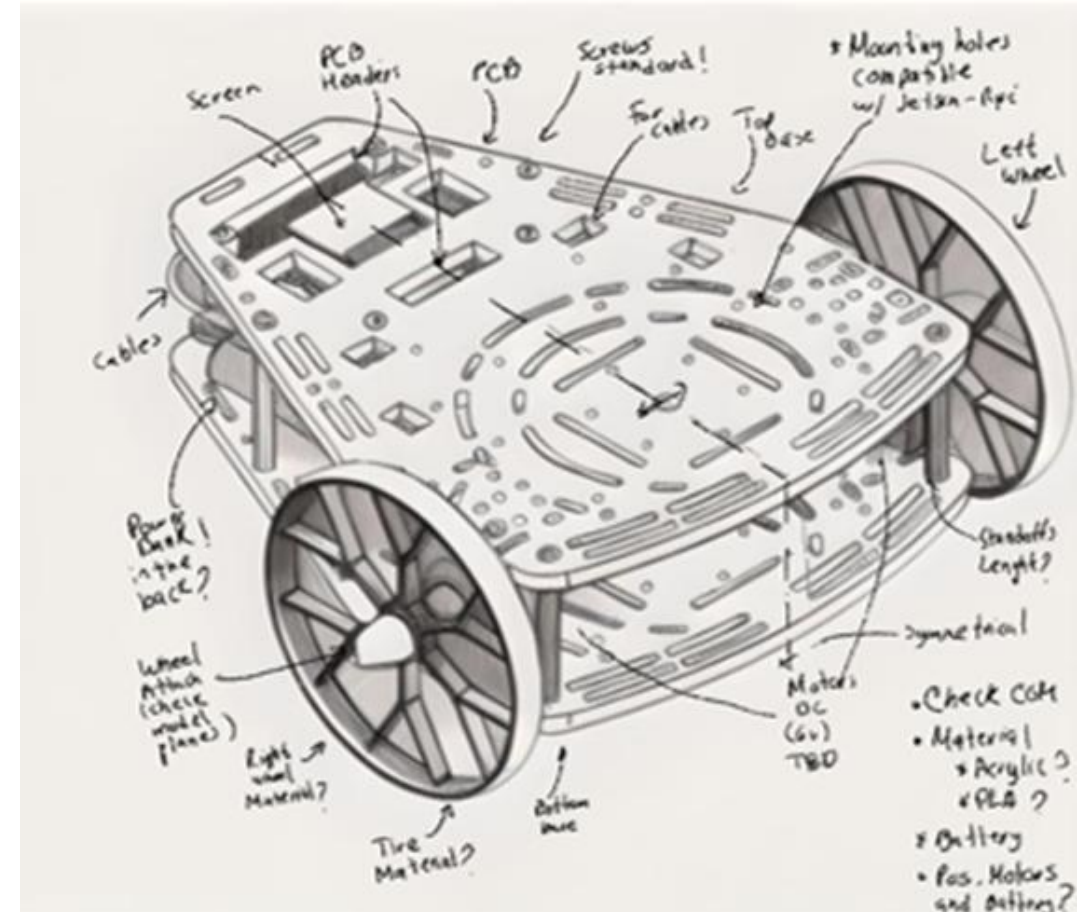 Screen
PCB
Headers
PCB
Screws
standard!
For
cables
Top
Base
* Mounting holes
compatible
w/ Jetson-Rpi
Left
Wheel
Cables
Power
Bank!
in the
back?
Wheel
Attach
(check
model
planes)
Right
wheel
Material?
Tire
Material?
Bottom
base
Motors
DC
(6v)
TBD
Symmetrical
Standoffs
Lenght?
• Check COM
• Material
* Acrylic?
* PLA?
* Battery
• Pos. Motors
and Battery?